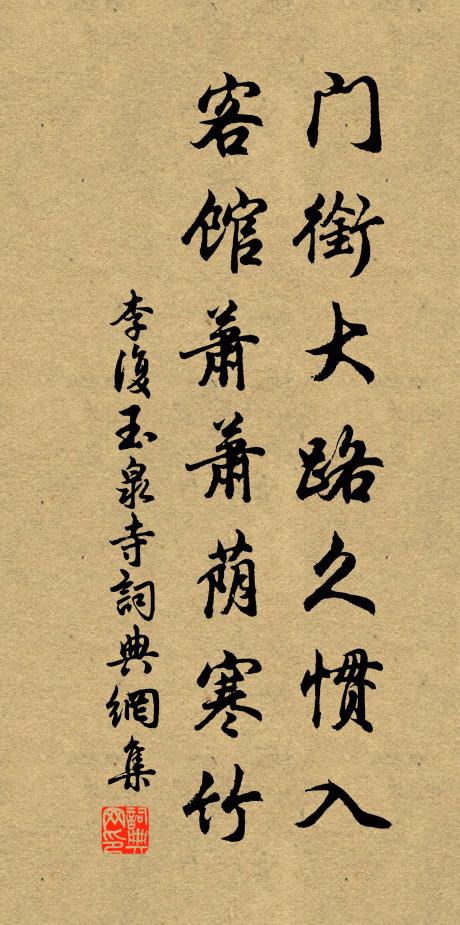 门衔大路久惯入
客馆萧萧荫寒竹
李復玉泉寺詞典網集
詞典网印